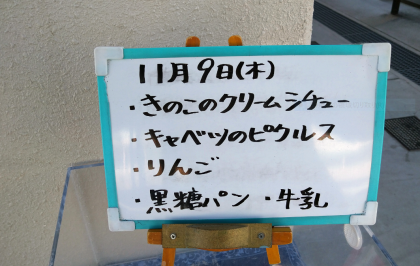 11月9日(木)
・きのこのクリームシチュー
・キャベツのピクルス
・りんご
・黒糖パン ・牛乳